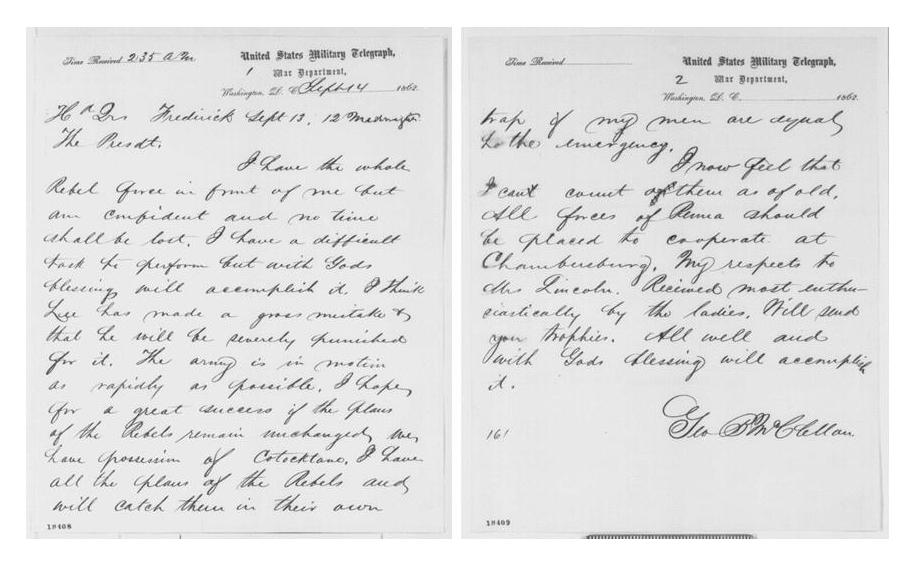 Time Received 2 35 A M
United States Military Telegraph,
1 War Department,
Washington, D. C. Sept 14 1862.
Hd Qrs Frederick Sept 13, 12 Midnight
The Presdt.
I have the whole
Rebel force in front of me but
am confident and no time
shall be lost. I have a difficult
task to perform but with Gods
blessing will accomplish it. I think
Lee has made a gross mistake &
that he will be severely punished
for it. The army is in motion
as rapidly as possible. I hope
for a great success if the plans
of the Rebels remain unchanged, we
have possession of Cotocktane. I have
all the plans of the Rebels and
will catch them in their own
18408
Time Received
United States Military Telegraph,
2 War Department,
Washington, D. C. 1862.
trap if my men are equal
to the emergency.
I now feel that
I can count on them as of old.
All forces of Penna should
be placed to cooperate at
Chambersburg. My respects to
Mrs Lincoln. Received most enthu-
siastically by the ladies. Will send
you trophies. All well and
with Gods blessing will accomplish
it.
Geo B McClellan
161
18409